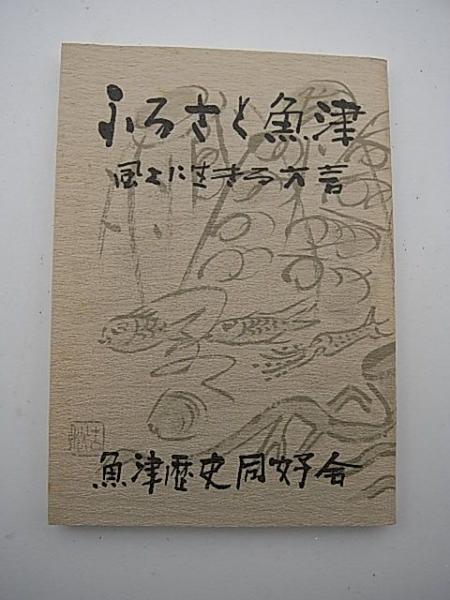 ふるさと魚津
風土に生きる方言
魚津歴史同好会